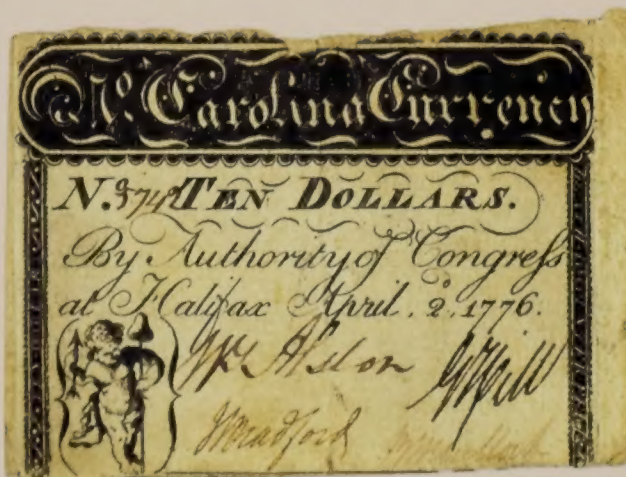 No. Carolina Currency
N. 374 TEN DOLLARS.
By Authority of Congreſs
at Halifax April. 2. 1776.
Wm Alston GWHill
JBradford